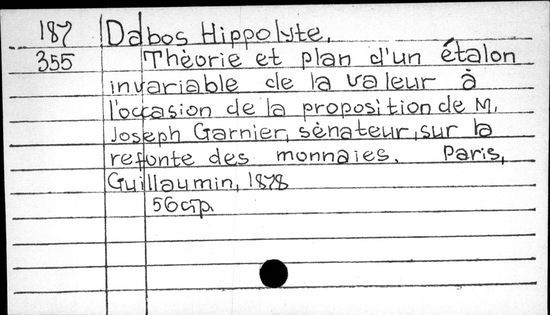 187 Dabos Hippolyte.
355 Thèorie et plan d'un étalon
invariable de la valeur à
l'occasion de la proposition de M.
Joseph Garnier, sènateur, sur la
refonte des monnaies. Paris,
Guillaumin, 1878
56 c, p.